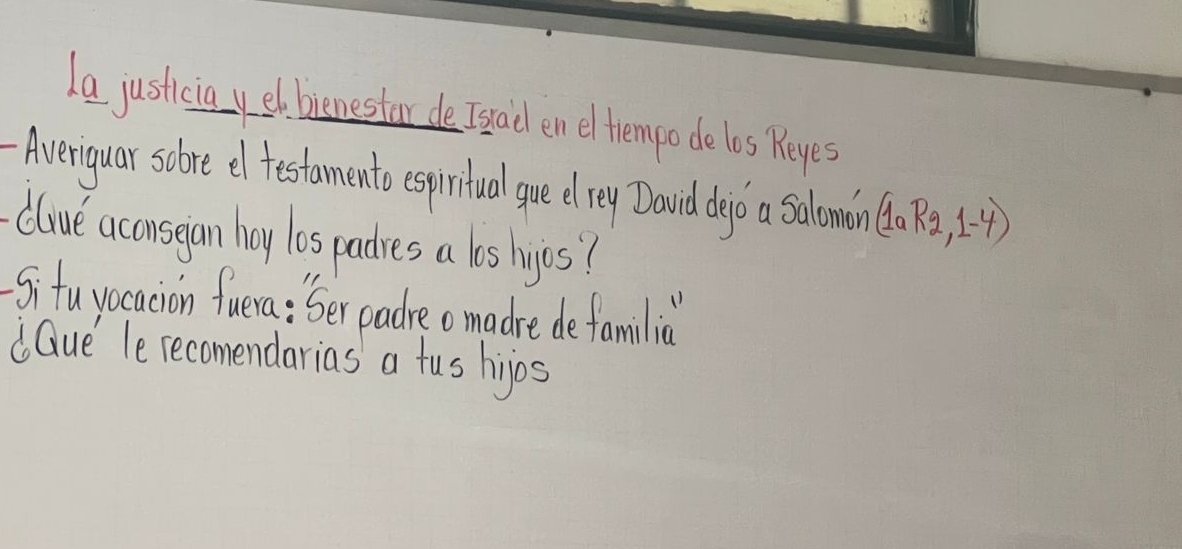 La justicia y el bienestar de Israel en el tiempo de los Reyes
- Averiguar sobre el testamento espiritual que el rey David dejó a Salomón (1a R2, 1-4)
- ¿Qué aconsejan hoy los padres a los hijos?
- Si tu vocación fuera: "Ser padre o madre de familia"
¿Qué le recomendarias a tus hijos